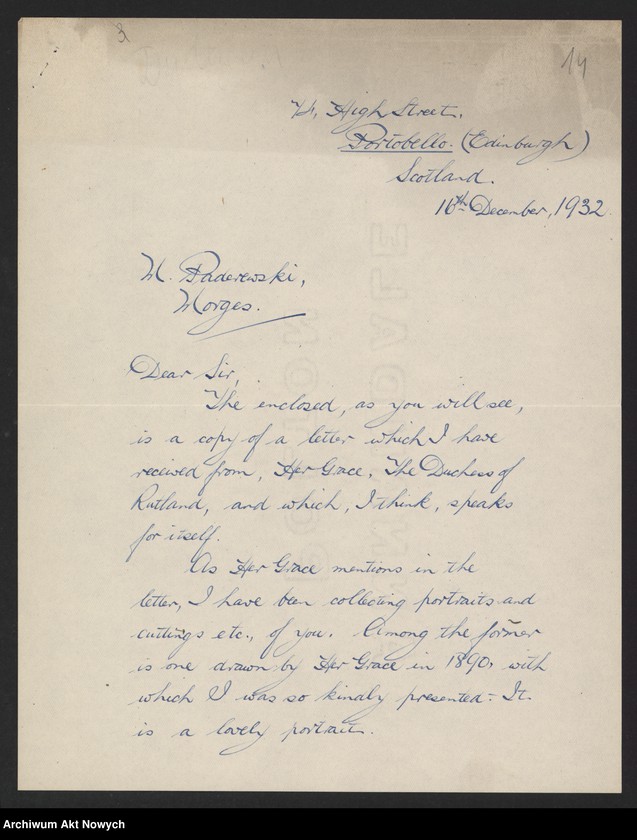 3
14
High Street.
Portobello. (Edinburgh)
Scotland.
16th December, 1932.
M. Paderewski,
Morges.
Dear Sir,
The enclosed, as you will see,
is a copy of a letter which I have
received from, Her Grace, The Duchess of
Rutland, and which, I think, speaks
for itself.
As Her Grace mentions in the
letter, I have been collecting portraits and
cuttings etc., of you. Among the former
is one drawn by Her Grace in 1890, with
which I was so kindly presented - It
is a lovely portrait.
Archiwum Akt Nowych